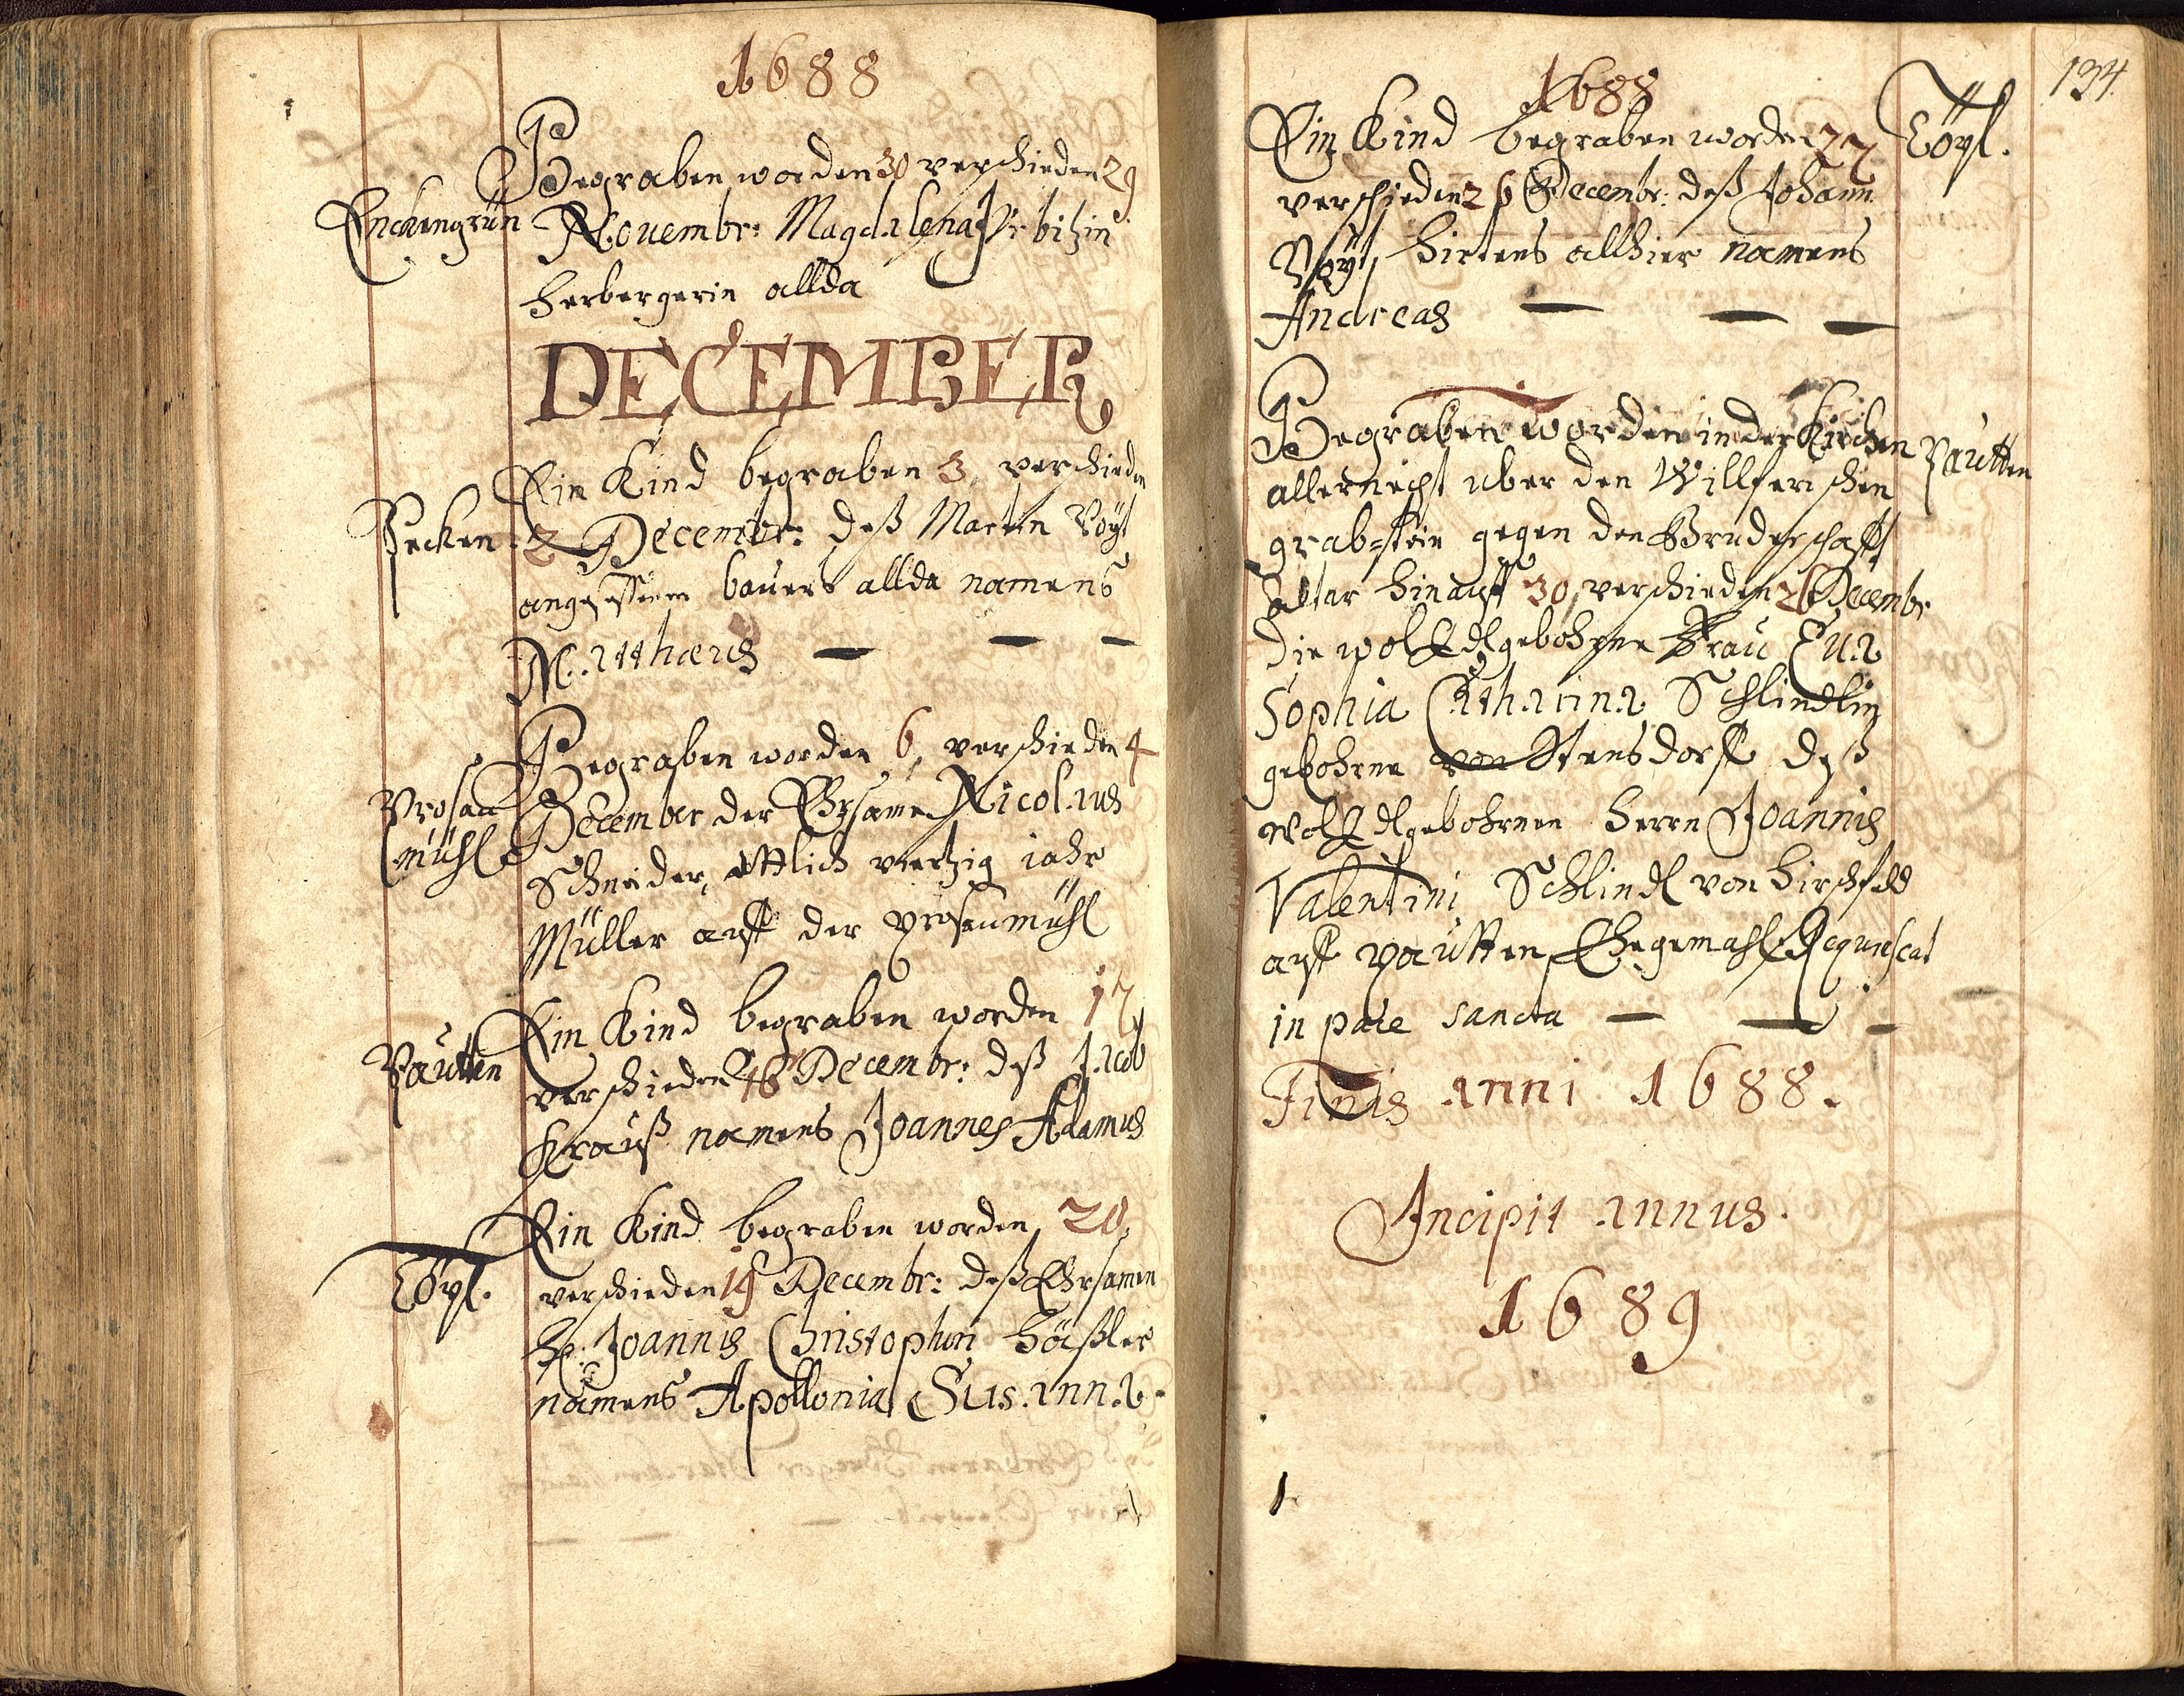 1688
Begraben worden 30 verschieden 29
Enckengrün Novembr: Magdalena
herbergerin allda
DECEMBER
Ein Kind begraben 3 verschieden
Pecken. 2 Decembr: deß Martin Voÿt
angesessenen bauers allda namens
Matthæus
Begraben worden 6, verschieden 4
Prosau December der Ehrsame Nicolaus
mühl Schneider, ettlich viertzig iahr
Müller auff der Prosaumühl
Ein Kind begraben worden 17
Pautten verschieden 16 Decembr: deß Jacob
Krauß namens Joannes Adamus
Ein Kind begraben worden 20
Töpl. verschieden 19 Decembr: deß Ehrsamen
H: Joannis Christophori Häßler
namens Apollonia Susanna
134
1688
Ein Kind begraben worden 27 Töpl.
verschieden 26 Decembr: deß Johann
Voÿt, hirtens allhier namens
Andreas
Begraben worden in der Kirchen Pautten
allernechst uber den
grab-stein gegen den Bruderschafft
altar hinauff 30, verschieden 26 Decembr
die wolEdlgebohrne Frau Eua
Sophia Catharina Schlindlin
gebohrne von Stensdorff deß
wolEdlgebohrnen Herrn Joannis
Valentini Schlindl von Hirschfeld
auff Pautten Ehegemahl. Requiescat
in pace sancta
Finis anni 1688.
Incipit annus.
1689